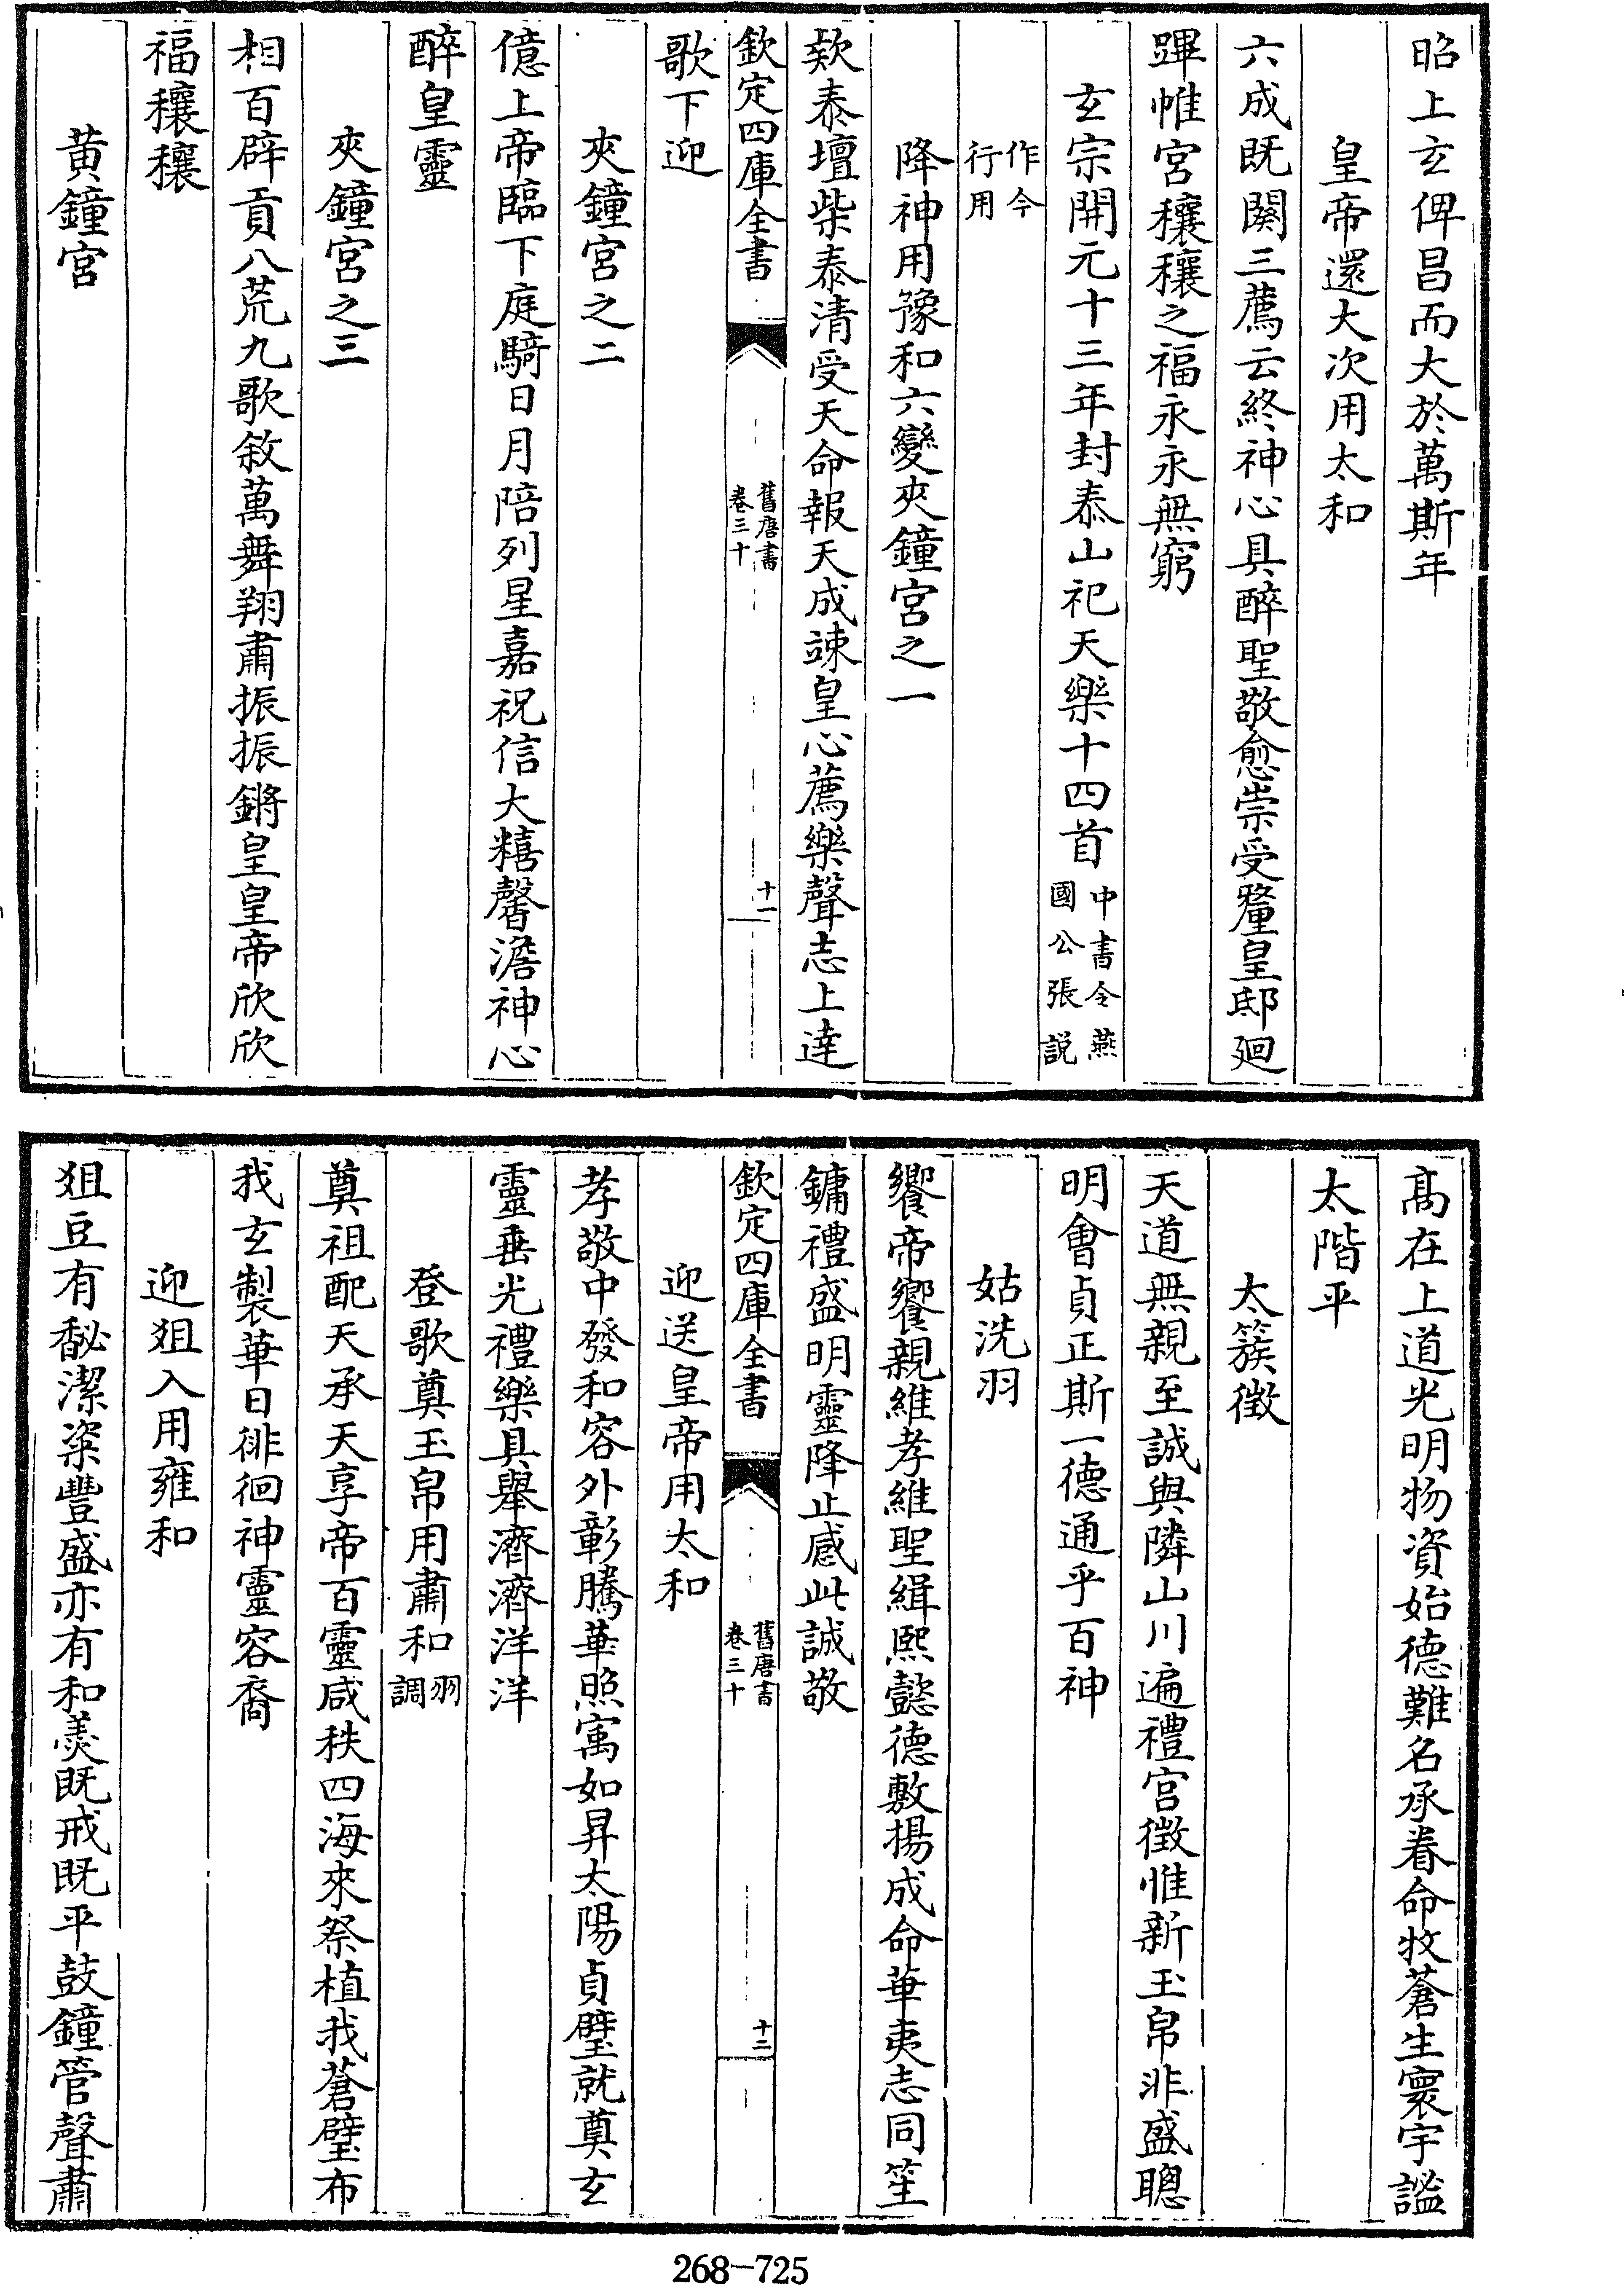 昭上玄俾昌而大於萬斯年
皇帝還大次用太和
六成既闋三薦云終神心具醉聖敬愈崇受釐皇邸廻
蹕帷宮穰穰之福永永無窮
玄宗開元十三年封泰山祀天樂十四首中書令燕國公張説
作今行用
降神用豫和六變夾鐘宮之一
欵泰壇柴泰清受天命報天成竦皇心薦樂聲志上逹
欽定四庫全書 舊唐書卷三十 十一
歌下迎
夾鐘宮之二
億上帝臨下庭騎日月陪列星嘉祝信大糦馨澹神心
醉皇靈
夾鐘宮之三
相百辟貢八荒九歌敘萬舞翔肅振振鏘皇皇帝欣欣
福穰穰
黄鐘宮
髙在上道光明物資始德難名承眷命牧蒼生寰宇謐
太階平
太簇徵
天道無親至誠與隣山川遍禮宮徵惟新玉帛非盛聰
明會貞正斯一德通乎百神
姑洗羽
饗帝饗親維孝維聖緝熙懿德敷揚成命華夷志同笙
鏞禮盛明靈降止感此誠敬
欽定四庫全書 舊唐書卷三十 十二
迎送皇帝用太和
孝敬中發和容外彰騰華照寓如昇太陽貞璧就奠玄
靈垂光禮樂具舉濟濟洋洋
登歌奠玉帛用肅和羽調
奠祖配天承天享帝百靈咸秩四海來祭植我蒼璧布
我玄製華日徘徊神靈容裔
迎俎入用雍和
俎豆有馝潔粢豐盛亦有和羮既戒既平鼓鐘管聲肅
268-725